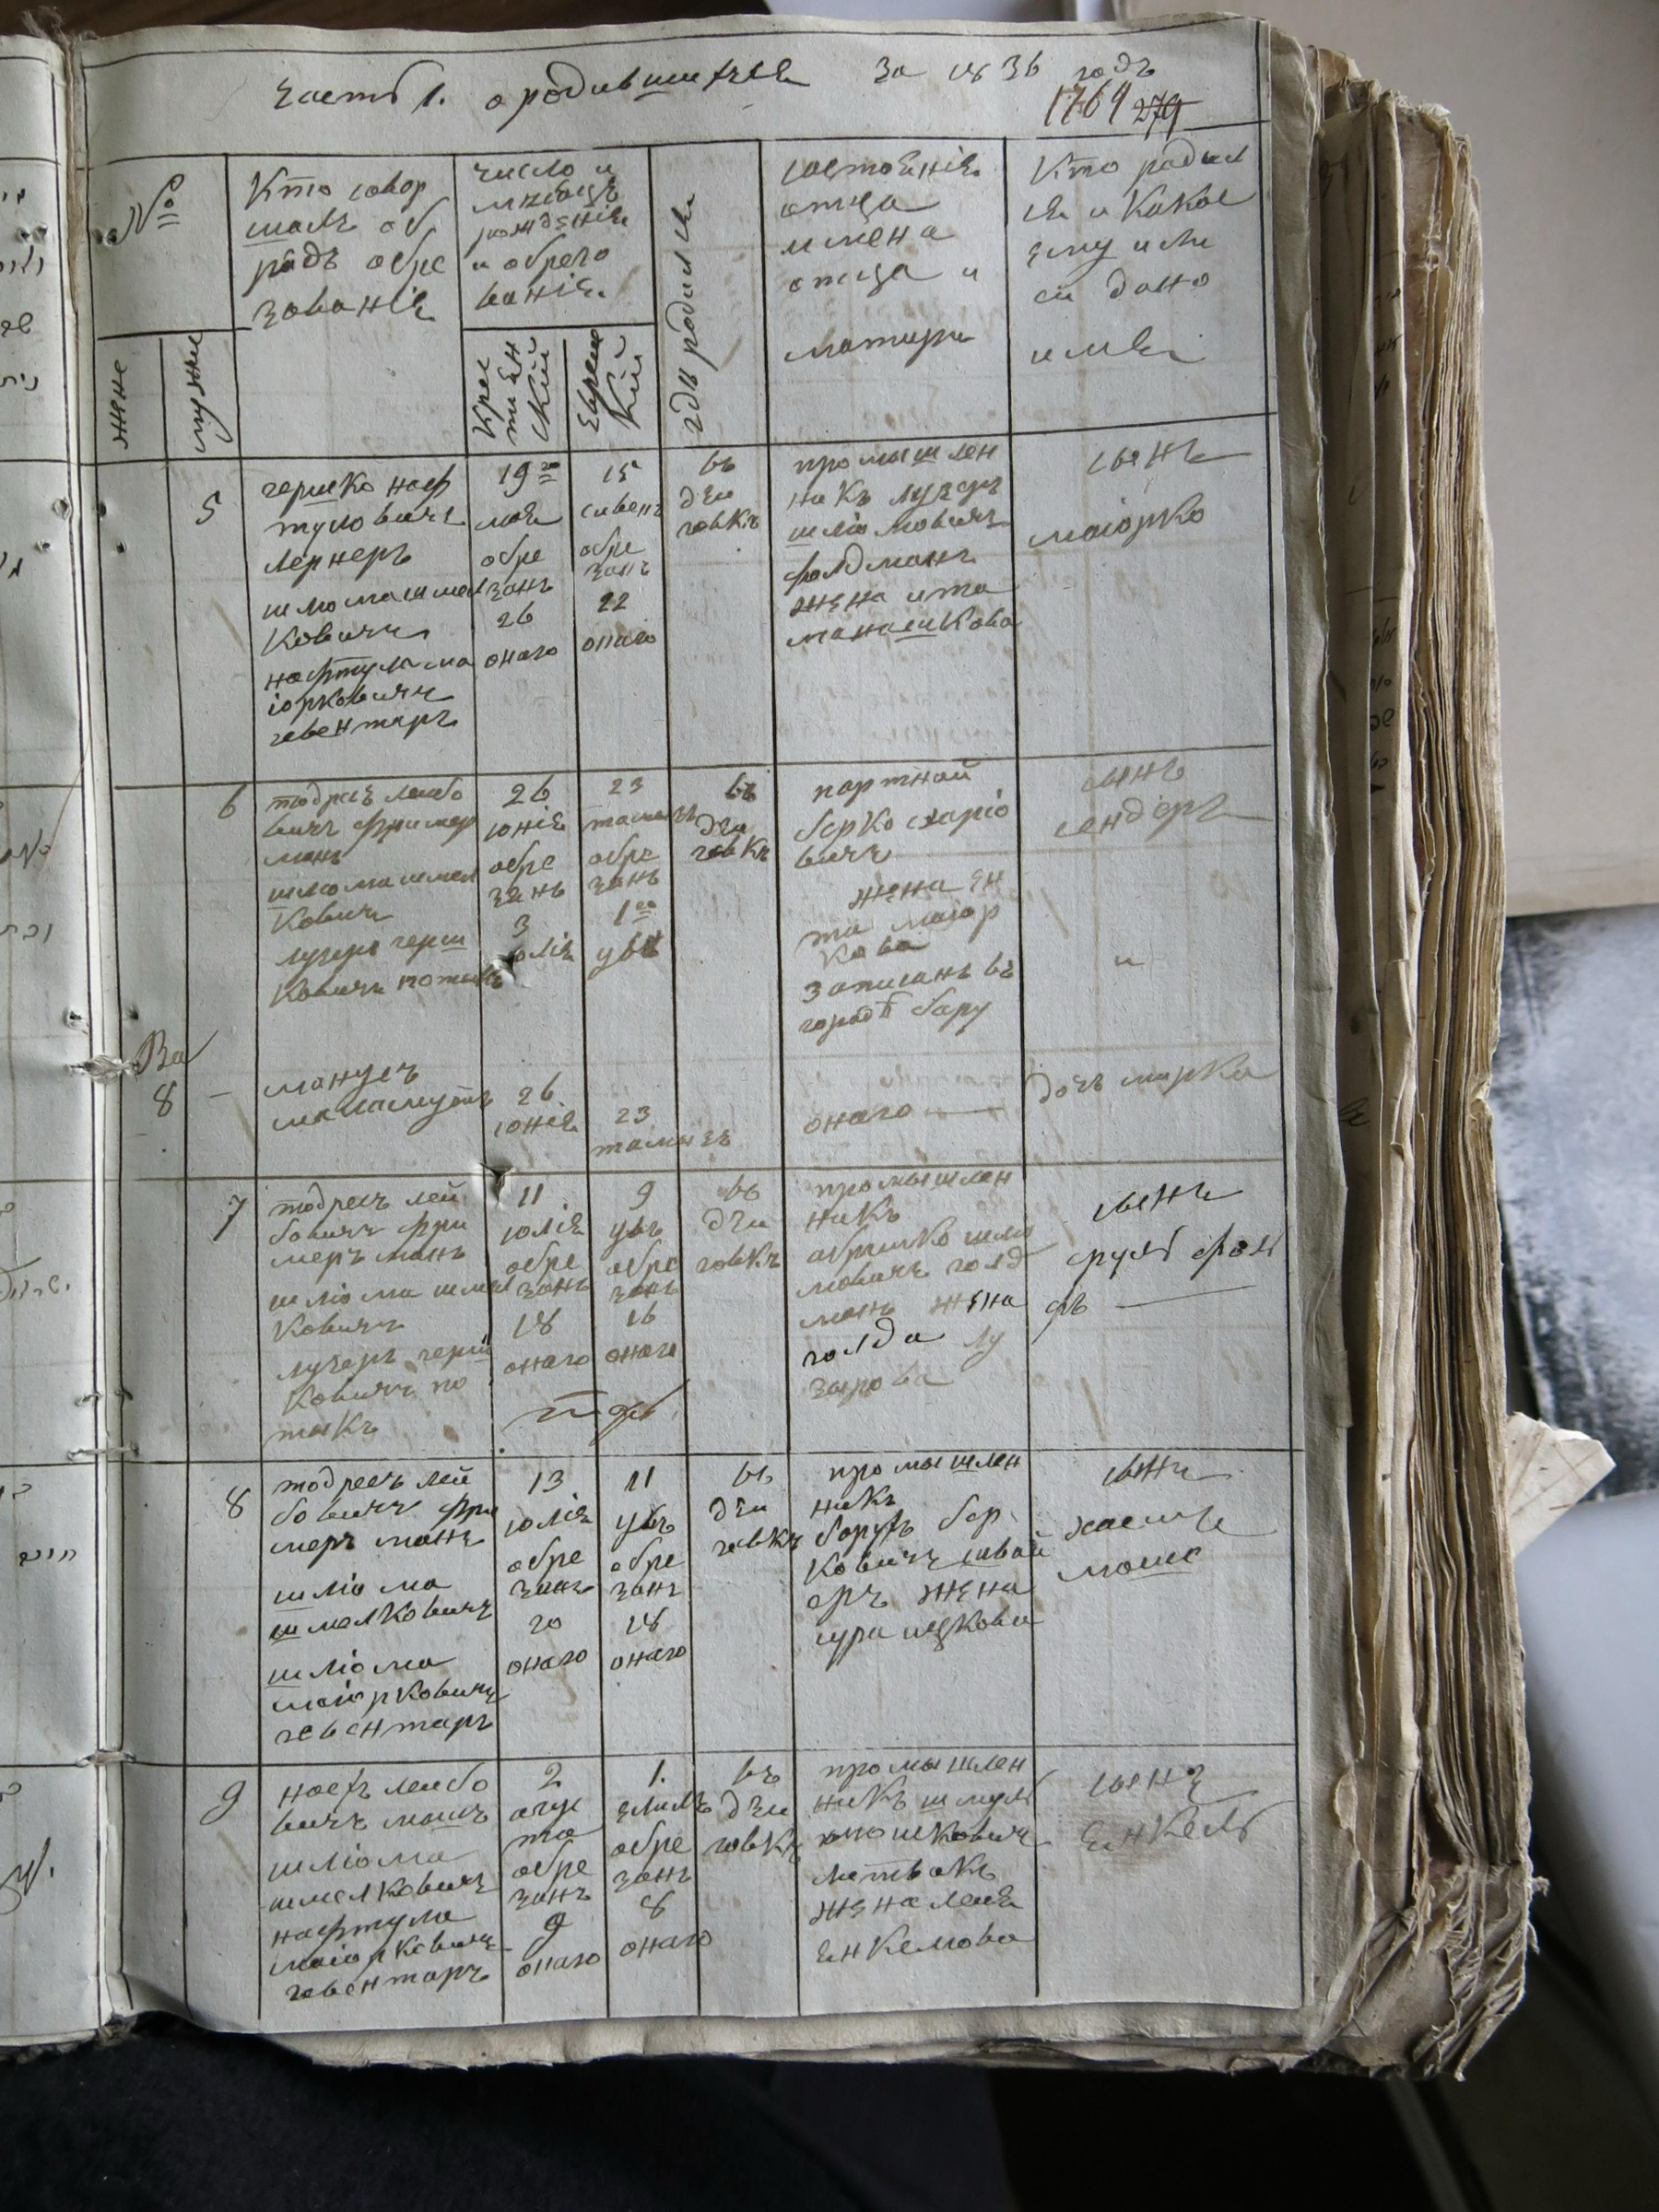 часть 1. о родившихся за 1836 годъ
1769 279
№
Кто совер
шалъ об
рядъ обре
зованіе
число и
месяцъ
рожденіе
и обрезо
ваніе.
Крес
тиен
ский
Еврейс
кий
гдъ родился
состоение
отца
имена
отца и
матери
Кто родил
ся и какое
ему или
ей дано
имя
женс
мужс
5
гершко наф
тулович
лернеръ
шліома шмел
ковичъ
нафтула ма
іорковичъ
гевентаръ
19го
мая
обре
занъ
26
онаго
15
сивень
обре
занъ
22
онаго
въ
дзи
говкъ
промышлен
никъ лузеръ
шліомовичъ
фелдманъ
жена ита
манашкова
сынъ
маіорко
6
тодресъ лейбо
вичъ фример
манъ
шліома шмел
ковичъ
лузеръ герш
ковичъ потикъ
26
юніе
обре
занъ
3
юліе
23
тамызъ
обре
занъ
1го
увъ
въ
дзи
говкъ
портной
берко
вичъ
жена ен
та маіор
кова
записанъ въ
городѣ бару
сынъ
сендеръ
8
манусъ
26
юніе
23
тамызъ
онаго
дочъ мирка
7
тодресъ лей
бовичъ фри
меръ манъ
шліома шмел
ковичъ
лузеръ герш
ковичъ по
тикъ
11
юліе
обре
занъ
18
онаго
9
увъ
обре
занъ
16
онаго
въ
дзи
говкъ
промышлен
никъ
абрамко шліо
мовичъ голд
манъ жена
голда лу
зырова
сынъ
сруль фол
фъ
8
тодресъ лей
бовичъ фри
меръ манъ
шліома
шмелковичъ
шліома
маіорковичъ
гевентаръ
13
юліе
обре
занъ
20
онаго
11
увъ
обре
занъ
18
онаго
въ
дзи
говкъ
промышлен
никъ
борухъ бер
ковичъ швай
еръ жена
сура ицкова
сынъ
хаемъ
моше
9
йосеф лейбо
вичъ
шліома
шмелковичъ
нафтула
маіорковичъ
гевентаръ
2
авгус
та
обре
занъ
9
онаго
1.
элилъ
обре
занъ
8
онаго
въ
дзи
говкъ
промышлен
никъ шмуль
йошковичъ
литвакъ
жена леие
енкелова
сынъ
Енкель